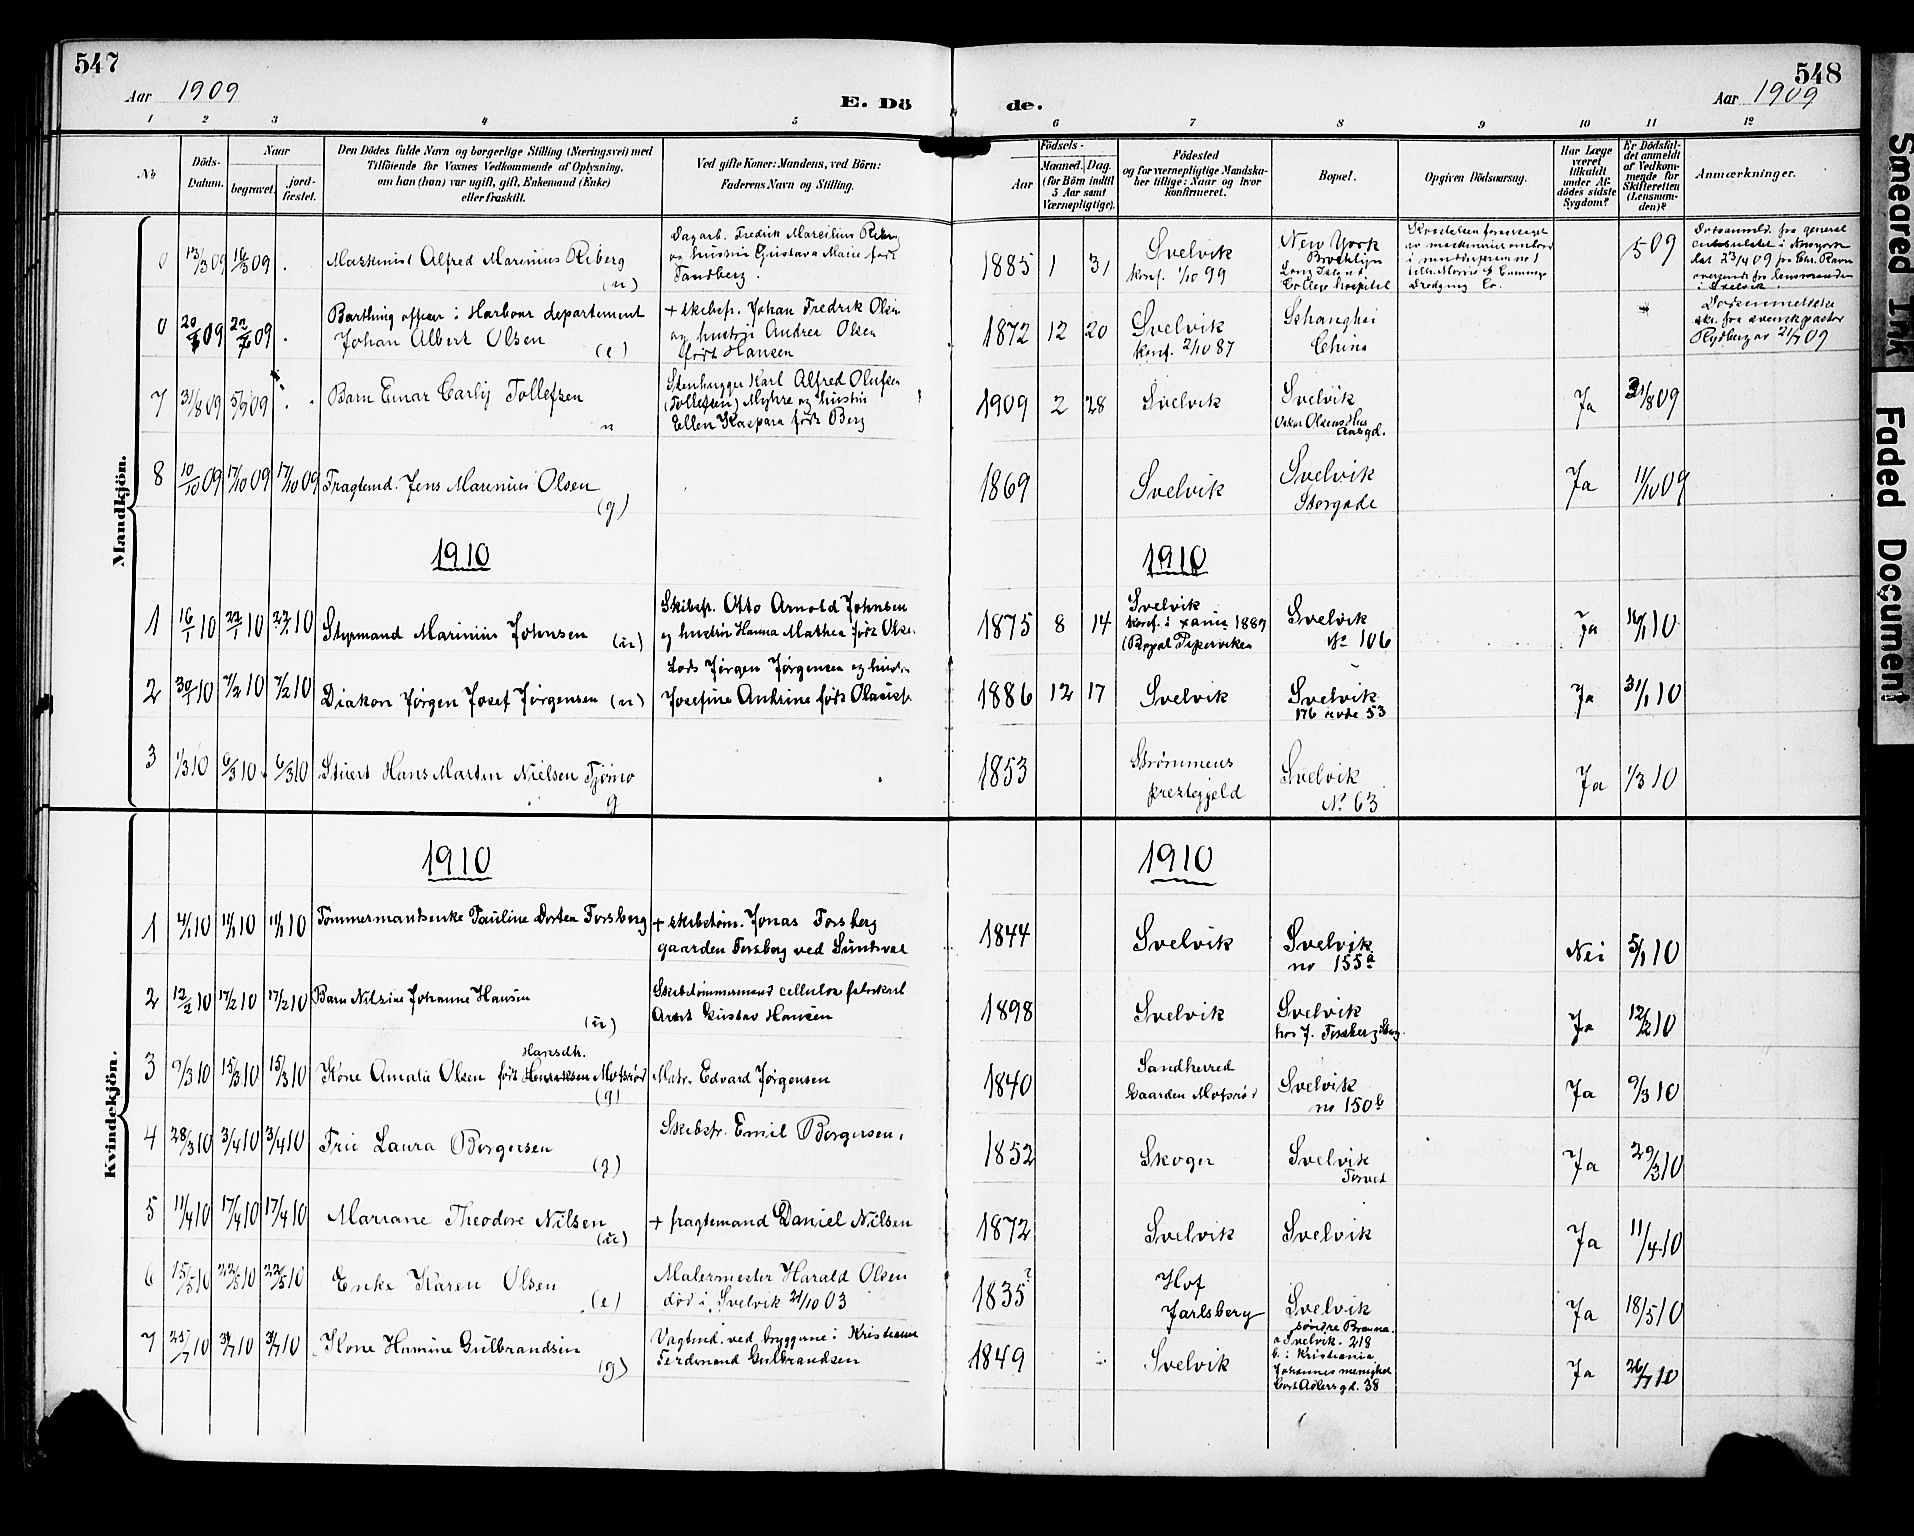 547
Aar 1909
E. Dö
de.
548
Aar 1909
1 2 3 4 5 6 7 8 9 10 11 12
№
Döds-
Datum.
Naar
begravet.
jord-
fæstet.
Den Dödes fulde Navn og borgerlige Stilling (Næringsvei) med
Tilföiende for Voxnes Vedkommende af Oplysning,
om han (hun) var ugift, gift, Enkemand (Enke)
eller fraskilt.
Ved gifte Koner: Mandens, ved Börn:
Faderens Navn og Stilling.
Födsels-
Aar
Maaned. Dag.
(for Börn indtil
5 Aar samt
Værnepligtige).
Födested
og for værnepligtige Mandska-
ber tillige: Naar og hvor
konfirmeret.
Bopæl.
Opgiven Dödsaarsag.
Har Læge
været
tilkaldt
under Af-
dödes sidste
Sygdom?
Er Dödsfal-
det anmeldt
af Vedkom-
mende for
Skifteretten
(Lensman-
den)?
Anmærkninger.
Mandkjön.
0 13/3 09 16/3 09 .
Maskinist Alfred Marinius Riberg
(u)
Dagarb. Fredrik Marcilius Riberg
og hustru Gustava Marie født
Tandberg.
1885 1 31
Svelvik
konf. 1/10 99
New York
Brooklyn
Long Island
College hospital
5 09
0 20 09 09 .
Johan Albert Olsen
(e)
+ skibsf. Johan Fredrik Olsen
og hustru Andrea Olsen
født Hansen
1872 12 20
Svelvik
konf. 2/10 87
Schanghei
China
7 31/8 09 5/9 09 .
Barn Einar Carlij Tollefsen
u
Stenhugger Karl Alfred Olufsen
(Tollefsen) Myhre og hustru
Ellen Kaspara født Berg
1909 2 28
Svelvik
Svelvik
Ja
31/8 09
8 10/10 09 17/10 09 17/10 09
Fragtemd. Jens Marinius Olsen
(g)
1869
Svelvik
Svelvik
Storgade
Ja
11/10 09
1910
1910
1 16/1 10 22/1 10 22/1 10
Styrmand Marinius Johnsen (u)
Skibsf. Otto Arnold Johnsen
og hustru Hanna Mathea født Olsen
1875 8 14
Svelvik
1889
(Bopæl Piperviken
Svelvik
№ 106
Ja
10
2 30/1 10 7/2 10 7/2 10
Diakon Jørgen Josef Jørgensen (u)
Lods Jørgen Jørgensen og hustru
Josefine Antrine født Olausf.
1886 12 17
Svelvik
Svelvik
Ja
31/1 10
3 1/3 10 6/3 10 6/3 10
Stuert Hans Martin Nielsen Tjømo
g
1853
Strømmens
prestegjeld
Svelvik
№ 63
Ja
1/3 10
Kvindekjön.
1910
1910
1 4/1 10 11/1 10 11/1 10
Tømmermandsenke Pauline Dortea Forsberg
+ skibstøm. Jonas Forsberg
gaarden Forsberg ved Sundsval
1844
Svelvik
Svelvik
no 155a
Nei
5/1 10
2 12/2 10 17/2 10 17/2 10
Barn Nilsine Johanne Hansen
(u)
Skibstømmermand cellulosefabrikart
Arnt Gustav Hansen
1898
Svelvik
Svelvik
hos J. Forsberg
Ja
12/2 10
3 9/3 10 15/3 10 15/3 10
Hansdtr.
Kone Amalie Olsen født Henriksen Mofsrød
(g)
Matr. Edvard Jørgensen
1840
Sandherred
Gaarden Mofsrød
Svelvik
no 150b
Ja
9/3 10
4 28/3 10 3/4 10 3/4 10
Fru Laura Borgersen
(g)
Skibsfr. Emil Borgersen.
1852
Skoger
Svelvik
Torvet
Ja
29/3 10
5 11/4 10 17/4 10 17/4 10
Mariane Theodore Nilsen
(u)
+ fragtemand Daniel Nilsen
1872
Svelvik
Svelvik
Ja
11/4 10
6 15/5 10 22/5 10 22/5 10
Enke Karen Olsen
(e)
Malermester Harald Olsen
død i Svelvik 21/10 03
1835?
Hof
Jarlsberg
Svelvik
søndre Brenna.
Ja
18/5 10
7 25/7 10 31/7 10 31/7 10
Kone Hamine Gulbrandsen
(g)
Vagtmd. ved bryggerne i Kristiania
Ferdinand Gulbrandsen
1849
Svelvik
a Svelvik. 218
b. i Kristiania
Johannes menighed
Cort Adlersgd. 38
Ja
26/7 10
Smeared Ink
Faded Document